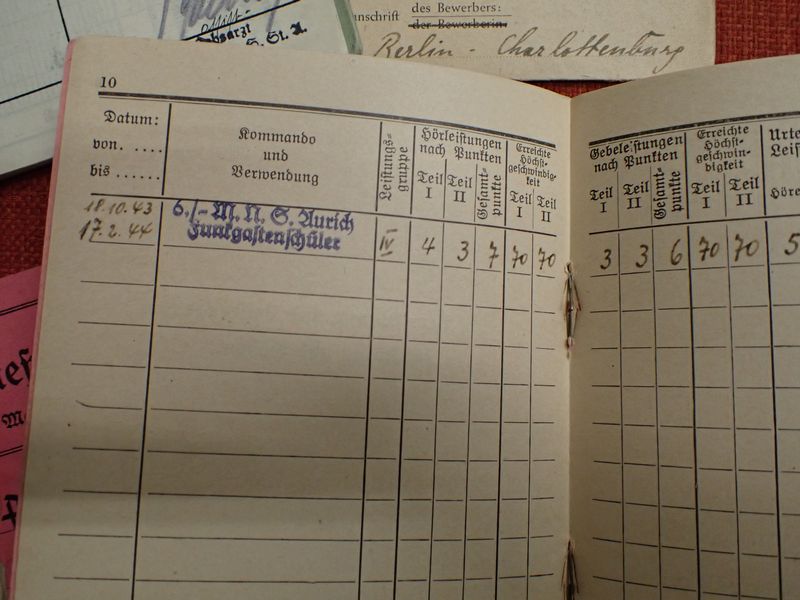 Absarzt
H. St. A.
anschrift
des Bewerbers:
der Bewerberin:
Berlin - Charlottenburg
10
Datum:
von. ....
bis ......
Kommando
und
Verwendung
Leistungs=
gruppe
Hörleistungen
nach Punkten
Teil
I
Teil
II
Gesamt=
punkte
Erreichte
Höchst=
geschwindig=
keit
Teil
I
Teil
II
18.10.43
17.2.44
6./- M. N. S. Aurich
Funkgastenschüler
IV 4 3 7 70 70
Gebeleistungen
nach Punkten
Teil
I
Teil
II
Gesamt=
punkte
Erreichte
Höchst=
geschwin=
digkeit
Teil
I
Teil
II
Urte
Leis
Höre
3 3 6 70 70 5